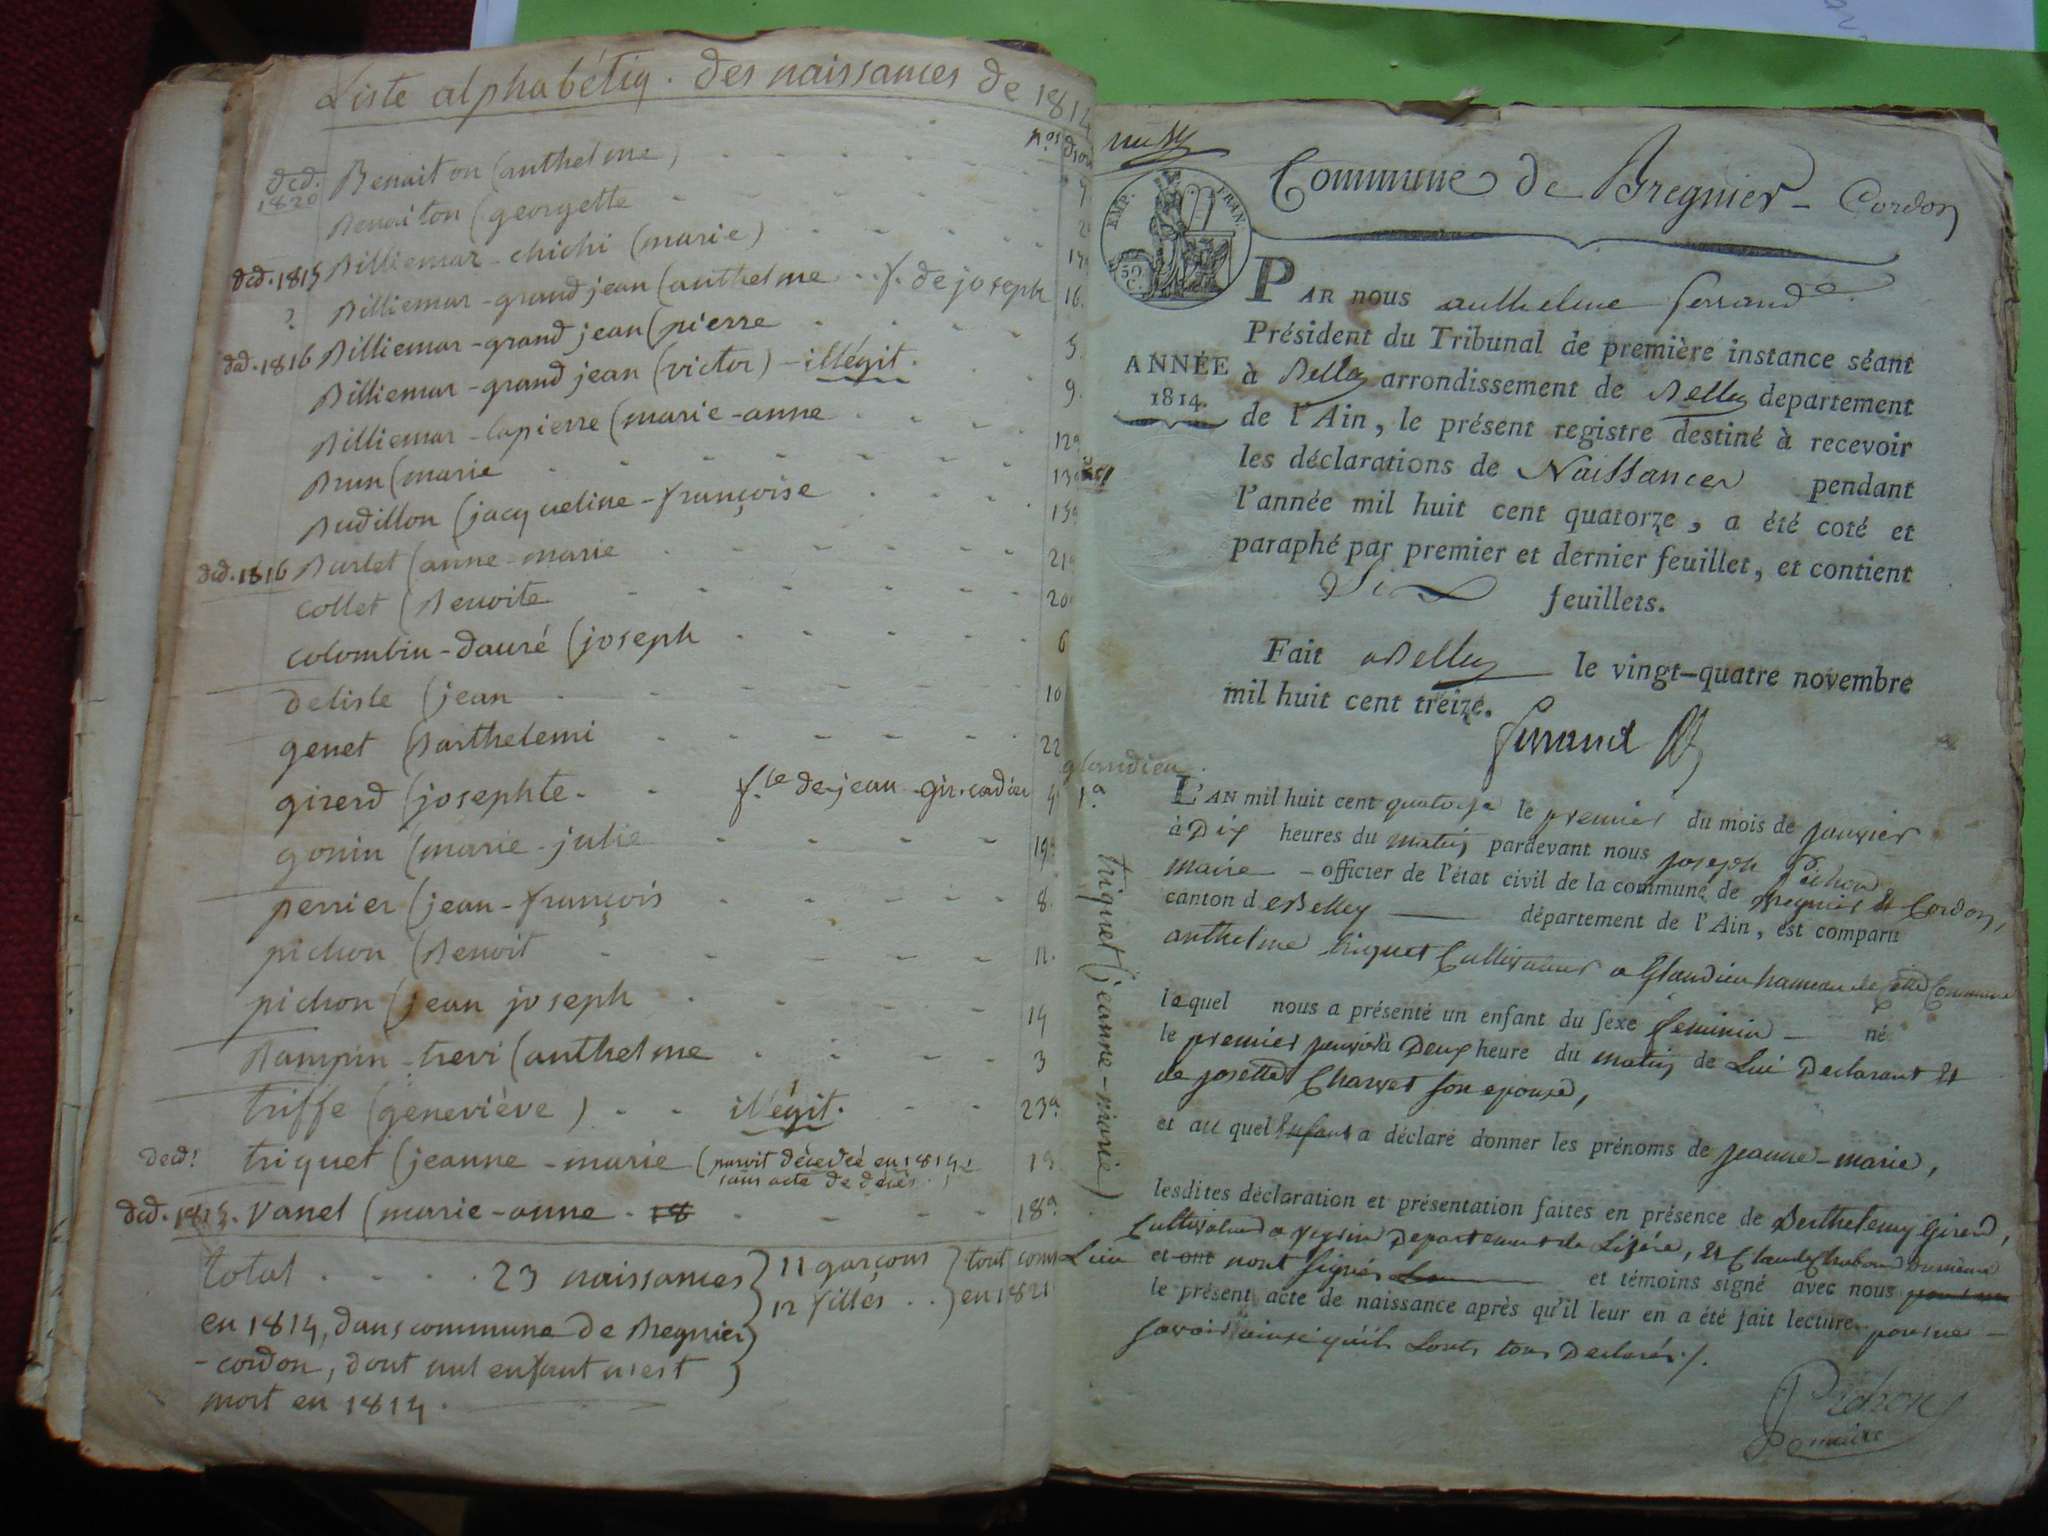 Liste alphabétiq. des naissances de 1814
n.os
dcd. 1820 Benaiton (anthelme)
Benaiton (georgette
Billiemar-chichi (marie)
dcd. 1815
? Billiemar-grand jean (anthelme .. f. de joseph 16.
dcd. 1816 Billiemar-grand jean (pierre 5.
Billiemar-grand jean (victor) - illégit. 9.
Billiemar-lapierre (marie-anne 12a
Brun (marie 13a
Budillon (jacqueline-françoise 15a
dcd. 1816 Burlet (anne-marie 21a
Collet (Benoite 20
colombin-dauré (joseph 6
delisle (jean 10
genet (Barthelemi 22
girerd (josephte f.le de jean 4
gonin (marie-julie 19a
perrier (jean-françois 8.
pichon (Benoit 11.
pichon (jean joseph 14
Rampin-trevi (anthelme 3
triffe (geneviève) illégit. 23a
decd! triquet (jeanne-marie (paroit décédée en 1814
sans acte de décès
dcd. 1815. Vanel (marie-anne - 18 18a
total 23 naissances } 11 garçons } tout
12 filles } en 1821
en 1814, dans commune de Bregnier
-cordon, dont nul enfant n'est
mort en 1814.
Commune de Bregnier - Cordon
EMP. FRAN.
50 C.
ANNÉE
1814.
PAR nous anthelme ferrand
Président du Tribunal de première instance séant
à Belley arrondissement de Belley departement
de l'Ain, le présent registre destiné à recevoir
les déclarations de Naissances pendant
l'année mil huit cent quatorze, a été coté et
paraphé par premier et dernier feuillet, et contient
feuillets.
Fait a Belley le vingt-quatre novembre
mil huit cent treize.
ferrand
glandieu.
1a.
triquet (jeanne-marie)
L'AN mil huit cent quatorze le premier du mois de janvier
à Dix heures du matin pardevant nous joseph Pichon
maire - officier de l'état civil de la commune de Bregnier et Cordon,
canton de Belley département de l'Ain, est comparu
anthelme triquet Cultivateur a Glandieu hameau de cette Commune
lequel nous a présenté un enfant du sexe feminin - né
le premier janvier à Deux heure du matin de Lui Declarant et
de josette Charvet son epouse,
et auquel Enfant a déclaré donner les prénoms de jeanne-marie,
lesdites déclaration et présentation faites en présence de Berthelemy Girerd,
Cultivateur a Departement de Lisére, et Claude
et ont nont signés et témoins signé avec nous
le présent acte de naissance après qu'il leur en a été fait lecture
savoir ainsi quils Lonts tous Declarés ./.
Pichon
maire